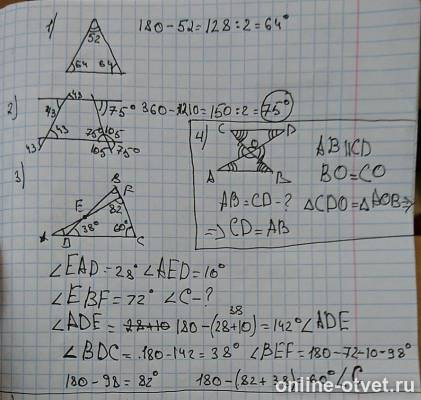 1) 180-52=128:2=64°
52
64 64
2) 43 1)75° 360-210=150:2=75°
43
43 75° 105
43 105 75°
4) C D
O
A B
AB||CD
BO=CO
AB=CD-? △CDO=△AOB⇒
⇒CD=AB
3) B
F
E 82
38° 60°
A D C
∠EAD=28° ∠AED=10°
∠EBF=72° ∠C-?
38
∠ADE= 28+10 180-(28+10)=142° ∠ADE
∠BDC=.180-142=38° ∠BEF=180-72-10-98°
180-98=82° 180-(82+38)=60° ∠C
online-otvet.ru